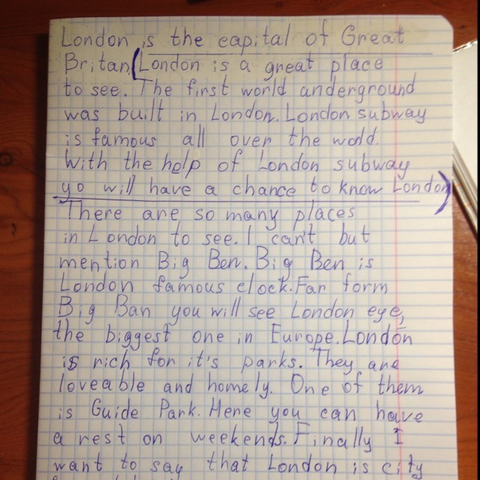 London is the capital of Great
Britan. (London is a great place
to see. The first world anderground
was built in London. London subway
is famous all over the world.
With the help of London subway
yo will have a chance to know London)
There are so many places
in London to see. I can't but
mention Big Ben. Big Ben is
London famous clock. Far form
Big Ban you will see London eye,
the biggest one in Europe. London
is rich for it's parks. They are
loveable and homely. One of them
is Guide Park. Here you can have
a rest on weekends. Finally I
want to say that London is city